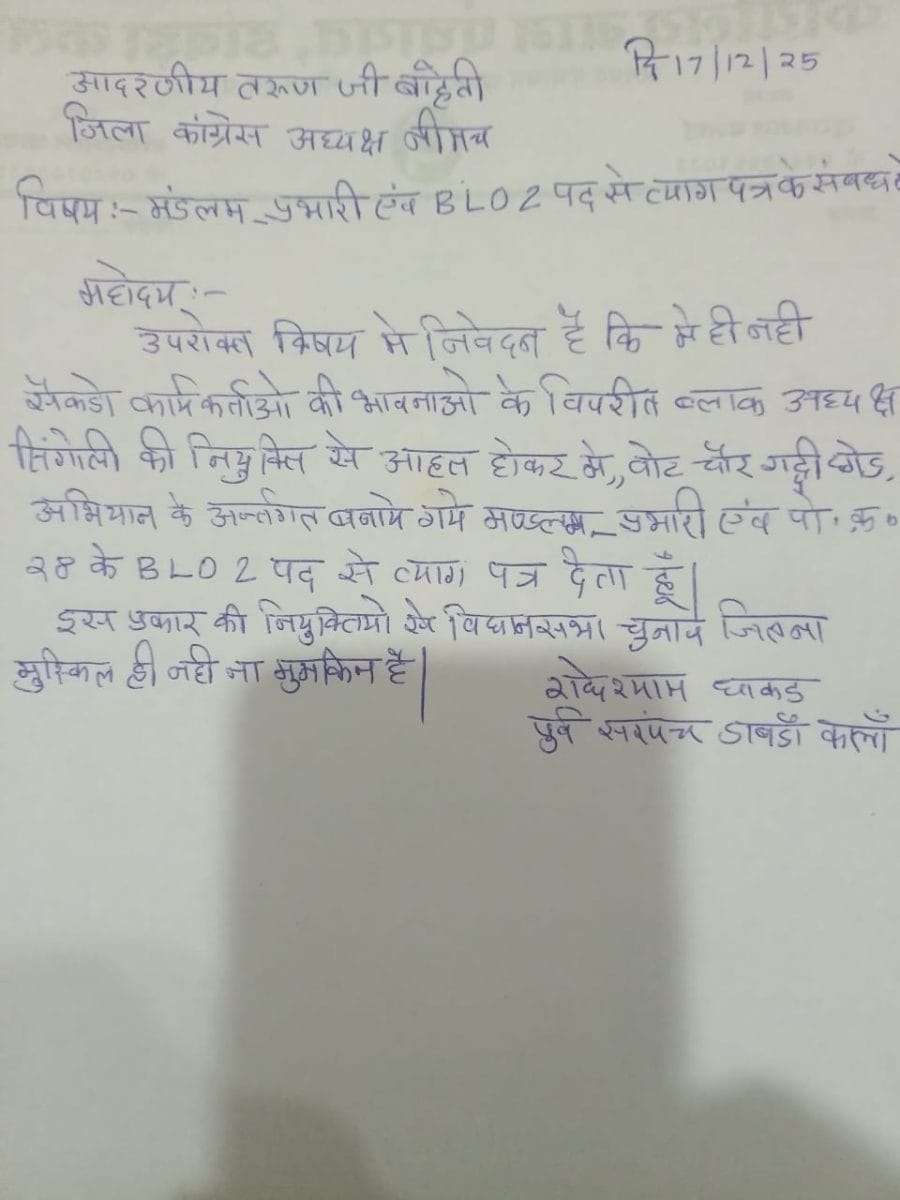 दि 17/12/25
आदरणीय तरूण जी बाहेती
जिला कांग्रेस अध्यक्ष नीमच
विषय :- मंडलम - प्रभारी एंव BLO 2 पद से त्याग पत्र के संबध
महोदय :-
उपरोक्त विषय मे निवेदन है कि मे ही नही
सैकडो कार्यकर्ताओ की भावनाओ के विपरीत ब्लाक अध्यक्ष
सिंगोली की नियुक्ति से आहत होकर मे,, वोट चौर गद्दी छोड.
अभियान के अर्न्तगत बनाये गये मण्डलम - प्रभारी एंव पो. क्र.
28 के BLO 2 पद से त्याग पत्र देता हूँ|
इस प्रकार की नियुक्तियो से विधानसभा चुनाव जितना
मुस्किल ही नही ना मुमकिन है|
राधेश्याम धाकड
पुर्व सरपंच डाबडाँ कलाँ